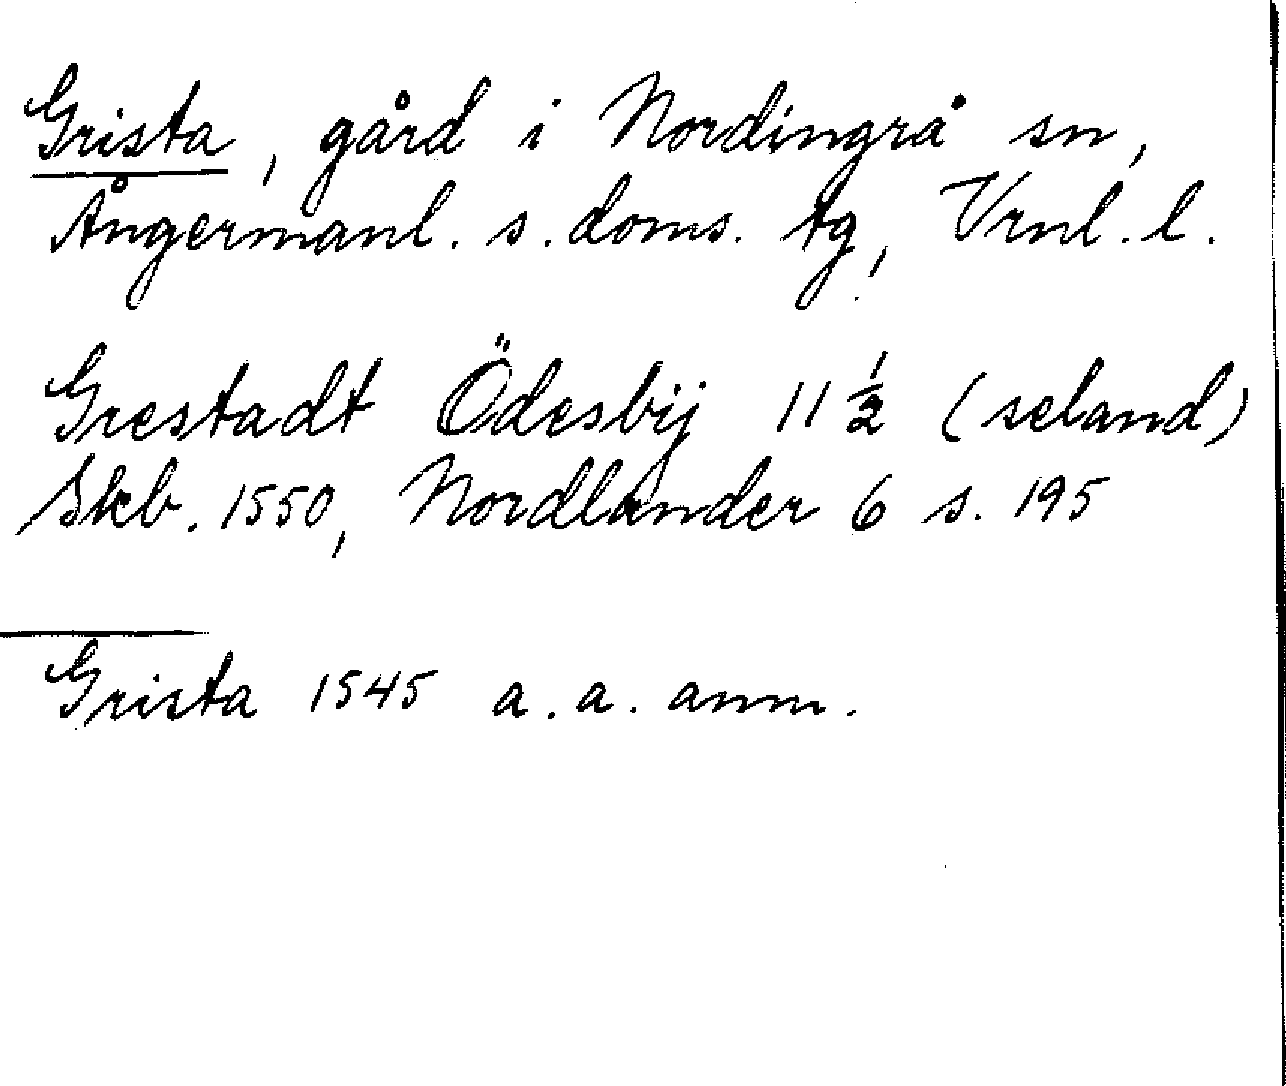 Grista, gård i Nordingrå sn,
Ångermanl. s. doms. tg, Vrnl. l.
Grestadt Ödesbij 11 ½ (seland)
Skb. 1550, Nordlander 6 s. 195
Grista 1545 a. a. anm.